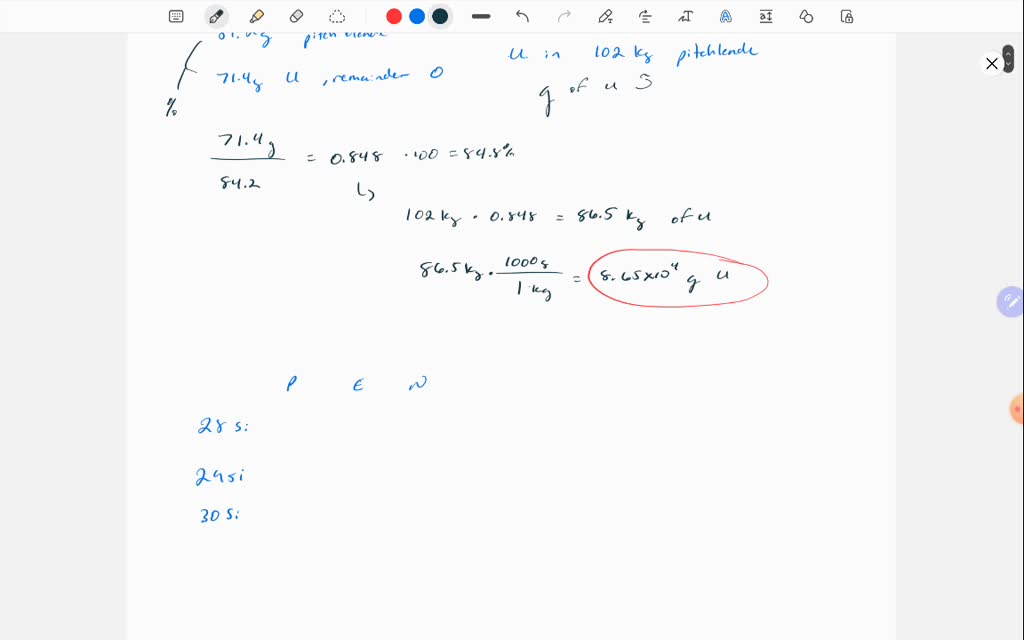 pitch
71.4g u , remainder O
%
u in 102 kg pitchlende
g of u S
71.4g
84.2
= 0.848 · 100 = 84.8%
102 kg · 0.848 = 86.5 kg of u
86.5 kg · 1000g / 1 kg = 8.65x10⁴ g u
P E N
28 Si
29 Si
30 Si